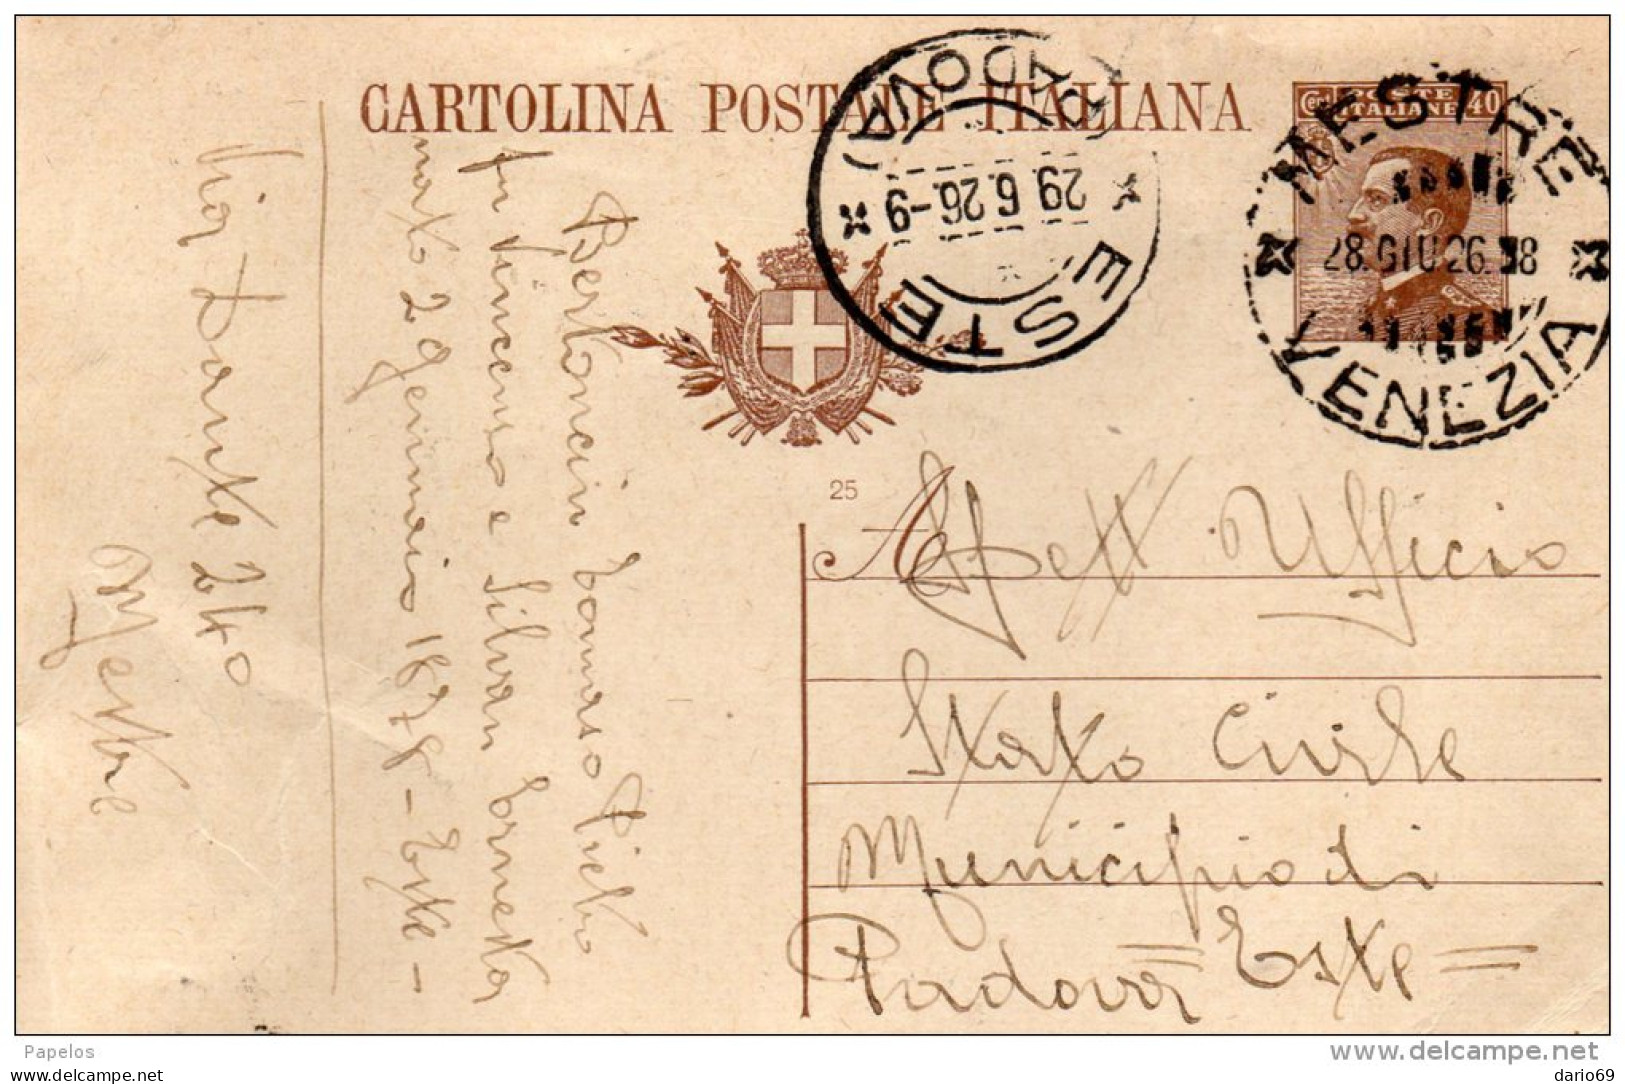 CARTOLINA POSTALE ITALIANA
Cent 40
POSTE
ITALIANE
MESTRE
28.GIU 26.18
VENEZIA
(PADOVA)
29.6.26.-9
ESTE
25
Bertoncin Tomaso Pietro
fu Vincenzo e Silvan Erneste
nato 2 gennaio 1878 - Este -
Via Dante 240
Mestre
A
Spett Ufficio
Stato Civile
Municipio di
= Este =
Padova
Papelos
www.delcampe.net
dario69